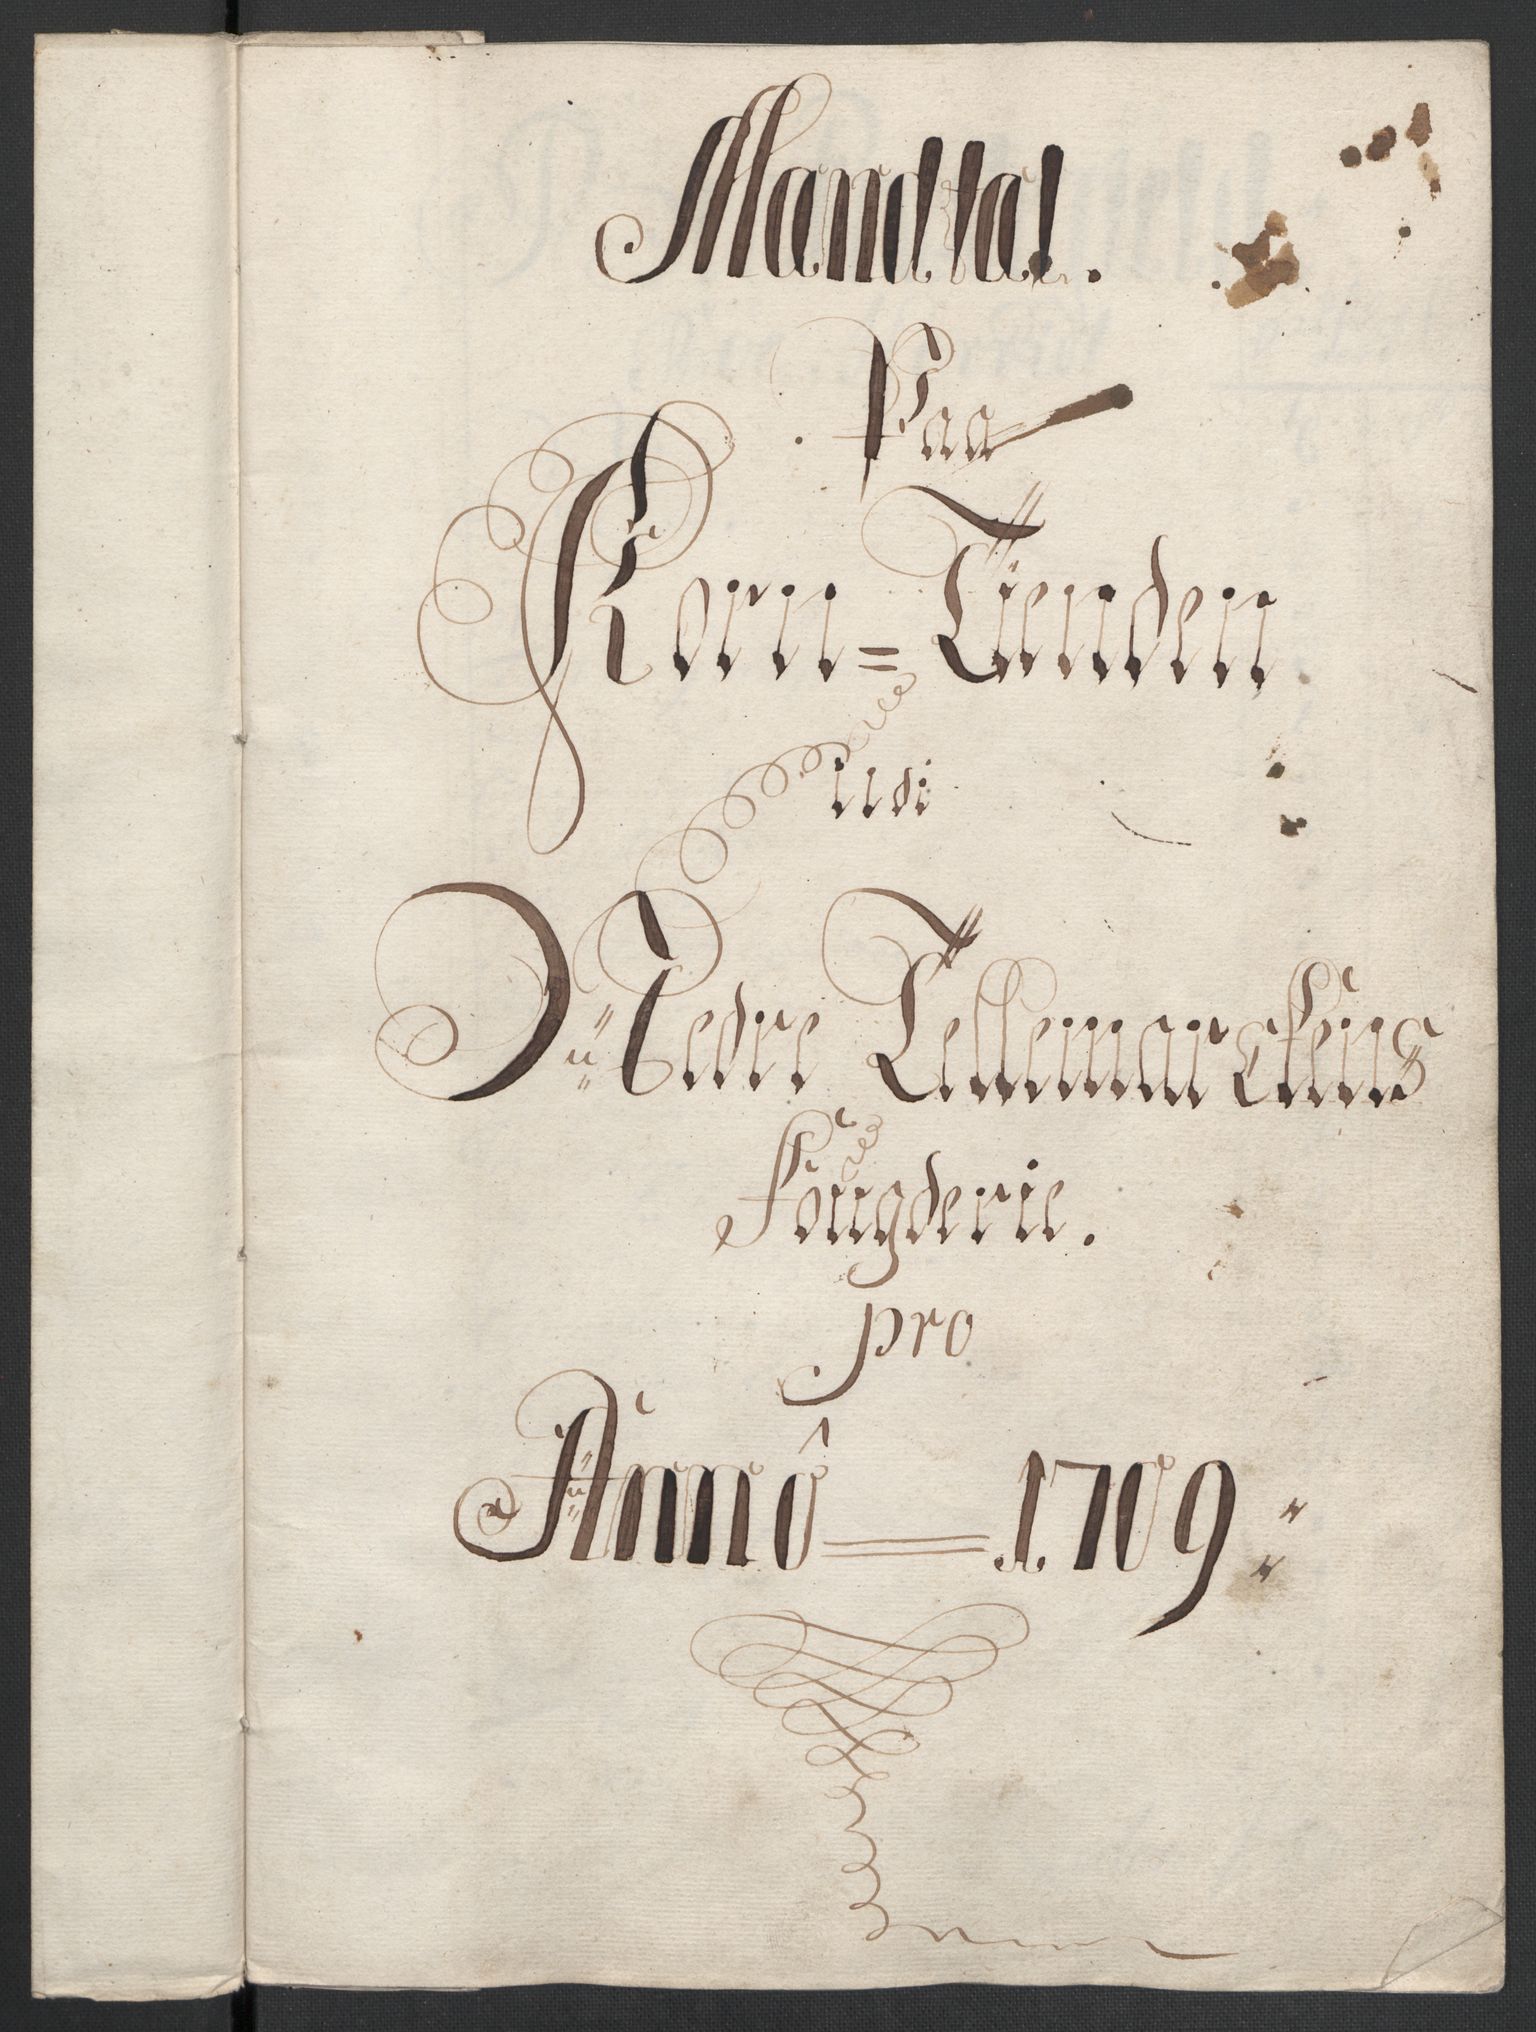 Mandtal.
Paa
Korn=Tienden
udi
Nedre Tellemarckens
Fougderie.
pro
Annô = 1709: